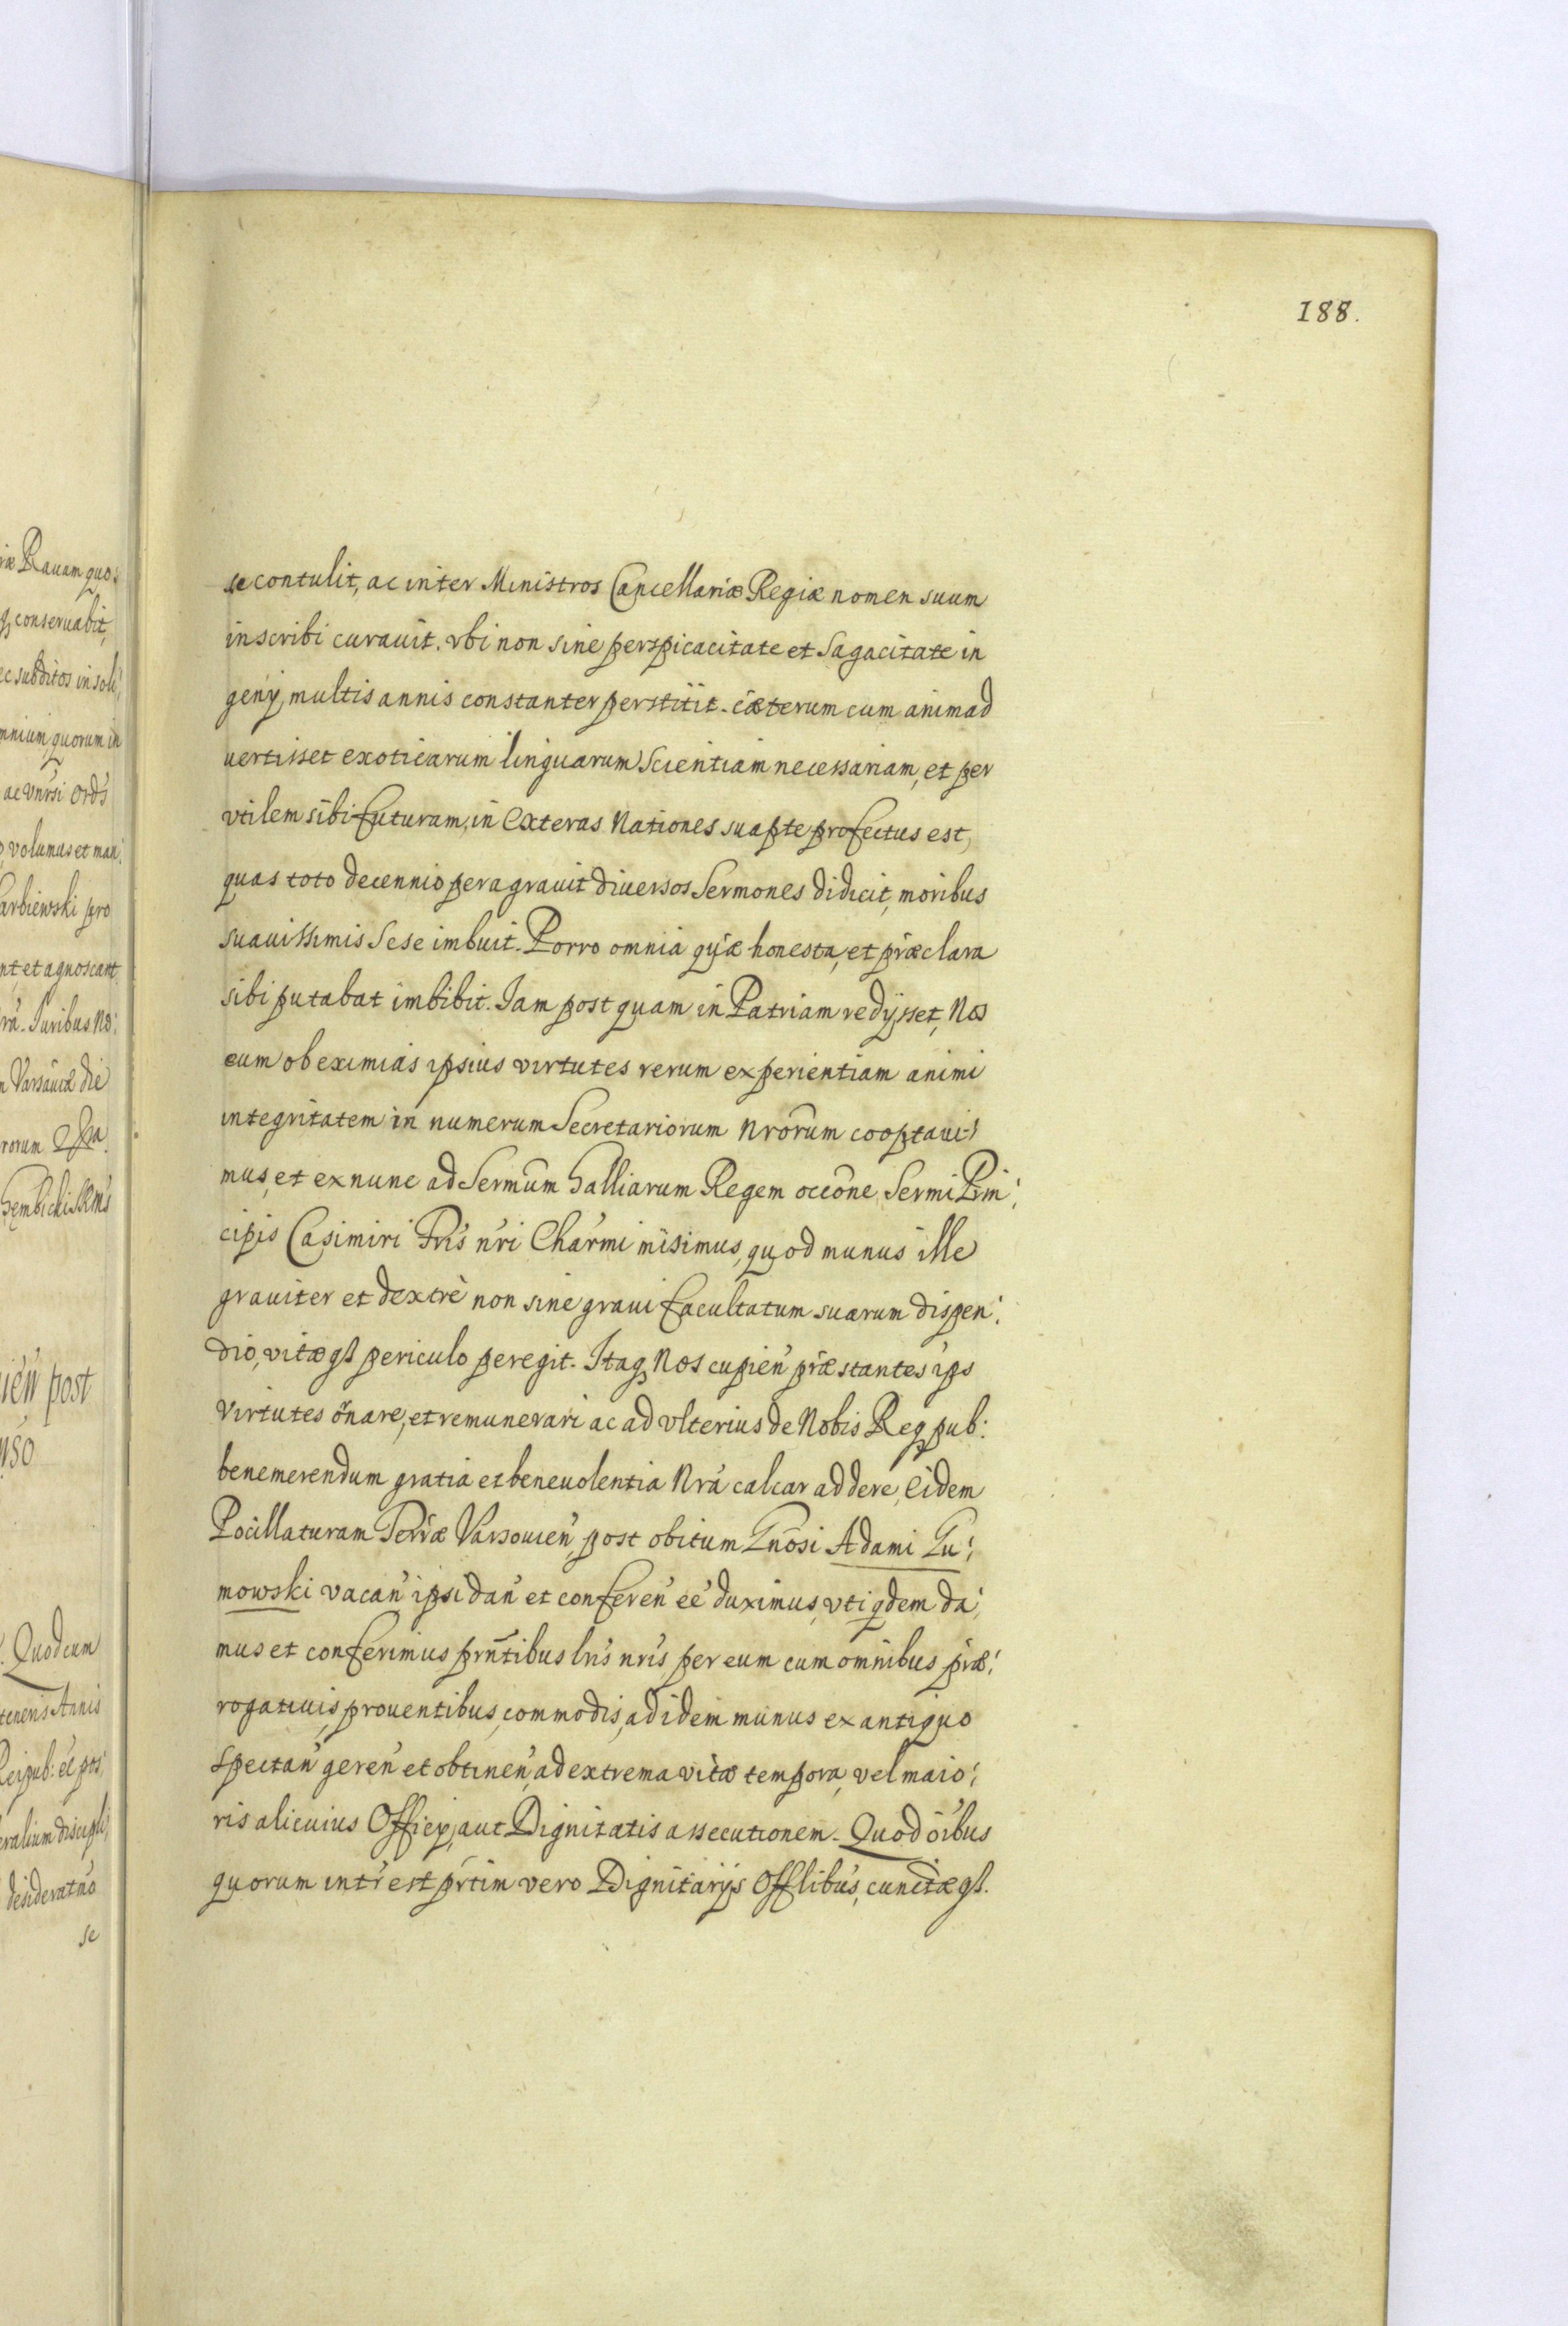 188.
se contulit, ac inter Ministros Cancellariæ Regiæ nomen suum
inscribi curauit. vbi non sine perspicacitate et Sagacitate in
genÿ, multis annis constanter perstitit. cæterum cum animad
uertisset exoticarum linguarum Scientiam necessariam, et per
vtilem sibi futuram, in Exteras Nationes suapte profectus est,
quas toto decennio peragrauit diuersos Sermones didicit, moribus
suauissimis Sese imbuit. Porro omnia quæ honesta, et præclara
sibi putabat imbibit. Jam post quam in Patriam redÿsset, Nos
eum ob eximias ipsius virtutes rerum experientiam animi
integritatem in numerum Secretariorum Nrorum cooptaui
mus, et ex nunc ad Sermum Galliarum Regem occone Sermi Prin:
cipis Casimiri Fris nri Charmi misimus, quod munus ille
grauiter et dextrè non sine graui facultatum suarum dispen:
dio, vitæqs periculo peregit. Itaq Nos cupien præstantes ips
virtutes ornare, et remunerari ac ad vlterius de Nobis Reqpub:
benemerendum gratia et beneuolentia Nra calcar addere, Eidem
Pocillaturam Terræ Varsouien, post obitum Gnosi Adami Gu:
mowski vacan ipsi dan et conferen ee duximus, vti qdem da:
mus et conferimus prntibus lris nris, per eum cum omnibus præ:
rogatiuis, prouentibus, commodis, ad idem munus ex antiquo
spectan geren et obtinen, ad extrema vitæ tempora, vel maio:
ris alicuius Officÿ, aut Dignitatis assecutionem. Quod oibus
quorum intrest prtim vero Dignitarÿs Offlibus, cunctæqs.